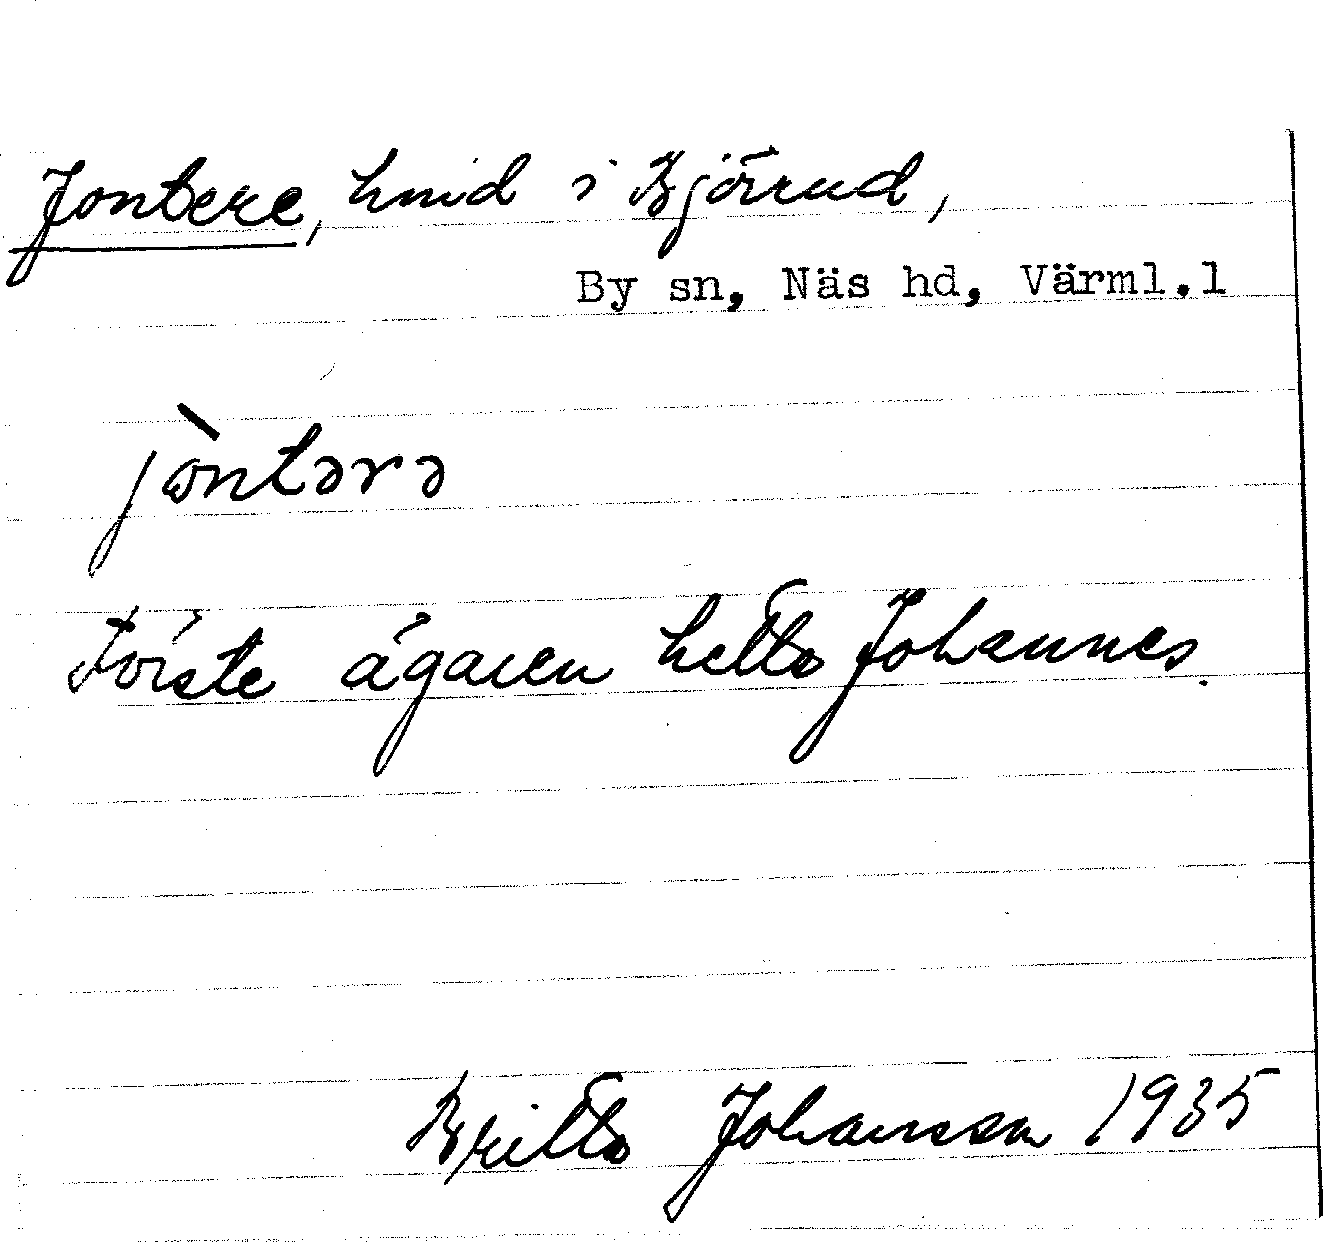 Jontere, hmd i Björrud,
By sn, Näs hd, Värml.l
jòntərə
Förste ägaren hette Johannes.
Britta Johansson 1935